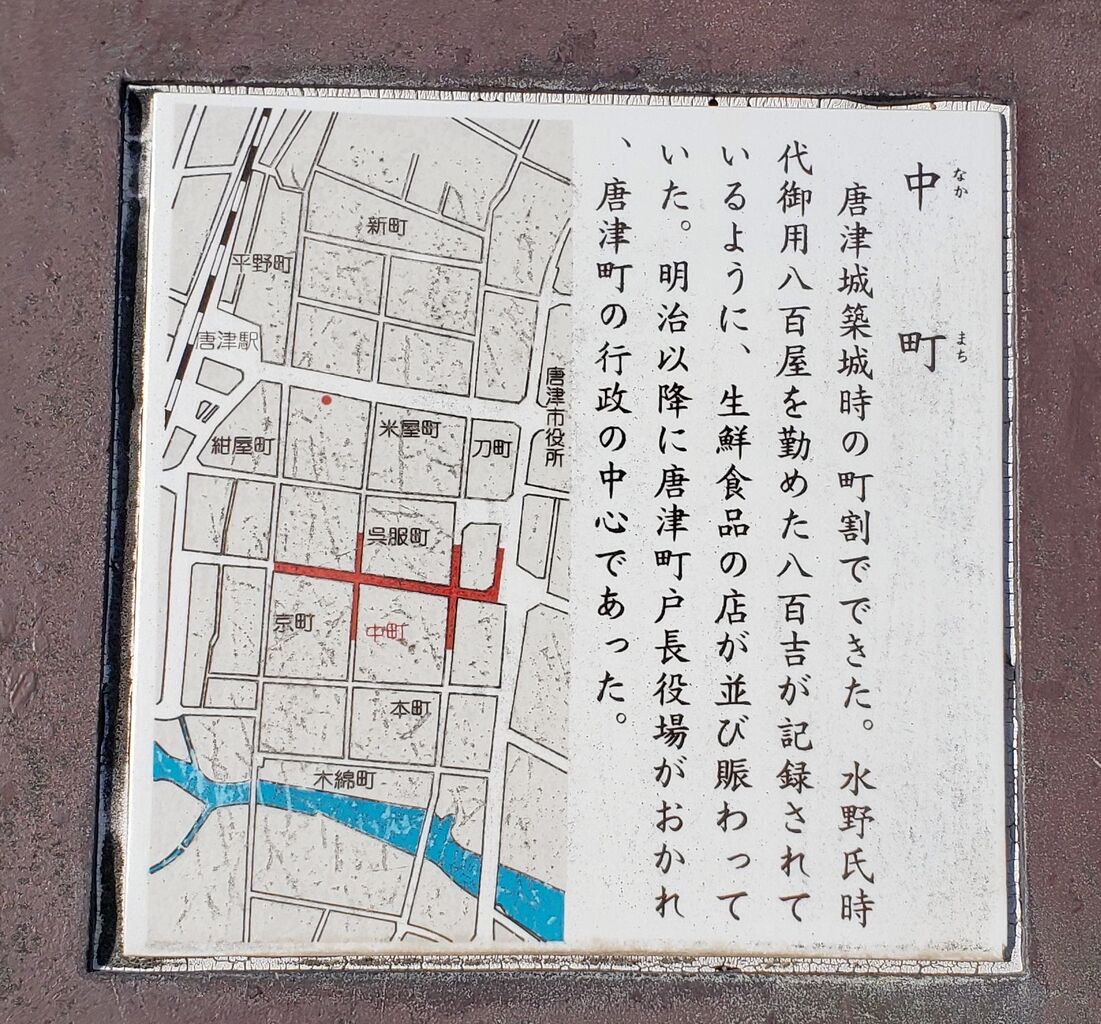 中町
なかまち
唐津城築城時の町割でできた。水野氏時
代御用八百屋を勤めた八百吉が記録されて
いるように、生鮮食品の店が並び賑わって
いた。明治以降に唐津町戸長役場がおかれ
、唐津町の行政の中心であった。
新町
平野町
唐津駅
唐津市役所
米屋町
刀町
紺屋町
呉服町
京町
中町
本町
木綿町